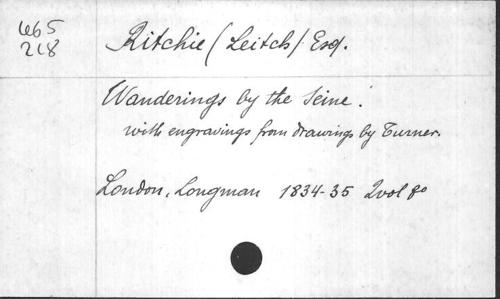 465
218
Ritchie (Leitch) Esq.
Wanderings by the Seine.
with engravings from drawings by Turner.
London, Longman 1834-35 2vol 8o